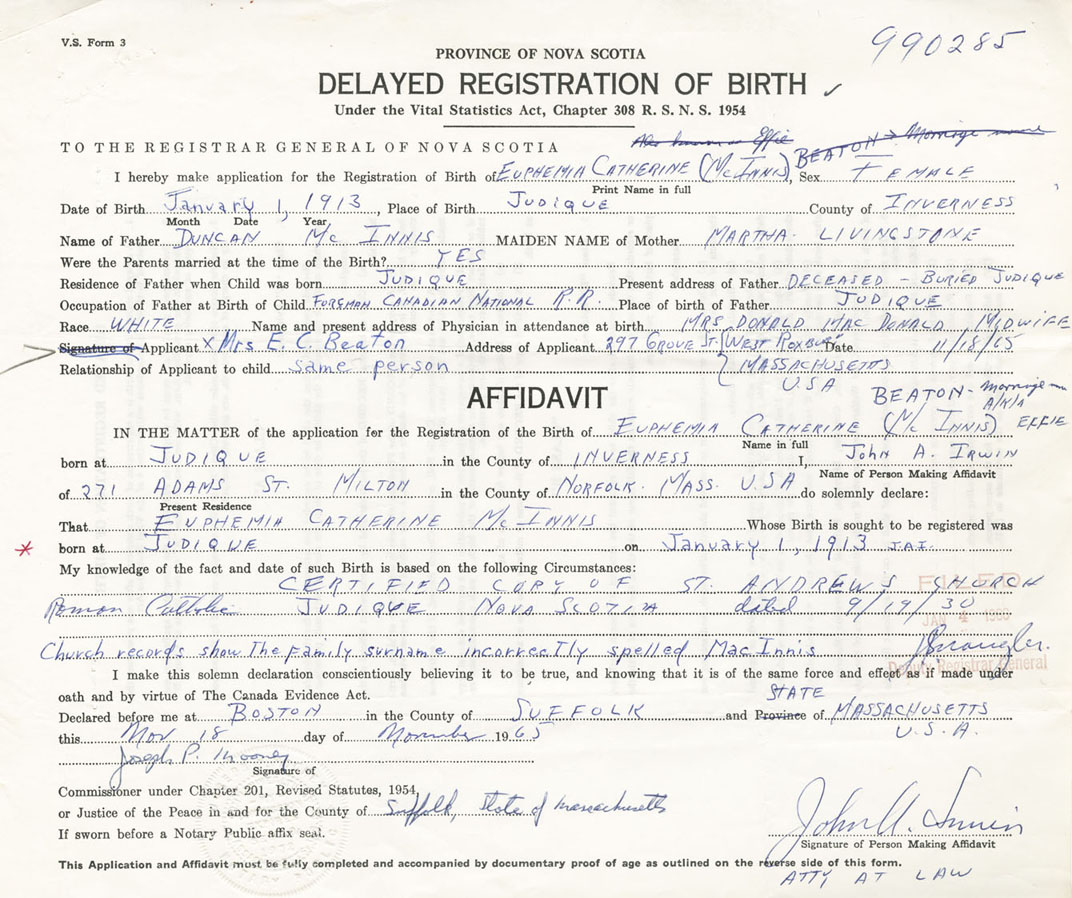 V.S. Form 3
990285
PROVINCE OF NOVA SCOTIA
DELAYED REGISTRATION OF BIRTH ✓
Under the Vital Statistics Act, Chapter 308 R. S. N. S. 1954
Also known as Effie BEATON → Marriage name
TO THE REGISTRAR GENERAL OF NOVA SCOTIA
I hereby make application for the Registration of Birth of EUPHEMIA CATHERINE (Mc INNIS), Sex FEMALE
Print Name in full
Date of Birth January 1, 1913, Place of Birth JUDIQUE County of INVERNESS
Month Date Year
Name of Father DUNCAN Mc INNIS MAIDEN NAME of Mother MARTHA LIVINGSTONE
Were the Parents married at the time of the Birth? YES
Residence of Father when Child was born JUDIQUE Present address of Father DECEASED - BURIED JUDIQUE
Occupation of Father at Birth of Child FOREMAN CANADIAN NATIONAL R.R. Place of birth of Father JUDIQUE
Race WHITE Name and present address of Physician in attendance at birth MRS DONALD MAC DONALD MIDWIFE
Signature of Applicant X Mrs E. C. Beaton Address of Applicant 297 GROVE ST. WEST ROXBURY Date 11/18/65
Relationship of Applicant to child same person MASSACHUSETTS
USA
AFFIDAVIT
BEATON - Marriage
A/K/A
IN THE MATTER of the application for the Registration of the Birth of EUPHEMIA CATHERINE (Mc INNIS) EFFIE
Name in full
born at JUDIQUE in the County of INVERNESS I, John A. IRWIN
Name of Person Making Affidavit
of 271 ADAMS ST. MILTON in the County of NORFOLK. MASS. USA do solemnly declare:
Present Residence
That EUPHEMIA CATHERINE Mc INNIS Whose Birth is sought to be registered was
* born at JUDIQUE on January 1, 1913 J.A.I.
My knowledge of the fact and date of such Birth is based on the following Circumstances:
CERTIFIED COPY OF ST. ANDREWS CHURCH
Roman Catholic JUDIQUE NOVA SCOTIA dated 9/19/30
FILED
JAN 4
Church records show The family surname incorrectly spelled Mac Innis
Deputy Registrar General
I make this solemn declaration conscientiously believing it to be true, and knowing that it is of the same force and effect as if made under
oath and by virtue of The Canada Evidence Act.
STATE
Declared before me at BOSTON in the County of SUFFOLK and Province of MASSACHUSETTS
U.S.A.
this Nov 18 day of November 1965
Joseph P. Mooney
Signature of
Commissioner under Chapter 201, Revised Statutes, 1954,
or Justice of the Peace in and for the County of Suffolk, State of Massachusetts
If sworn before a Notary Public affix seal.
John A. Irwin
Signature of Person Making Affidavit
This Application and Affidavit must be fully completed and accompanied by documentary proof of age as outlined on the reverse side of this form.
ATTY AT LAW